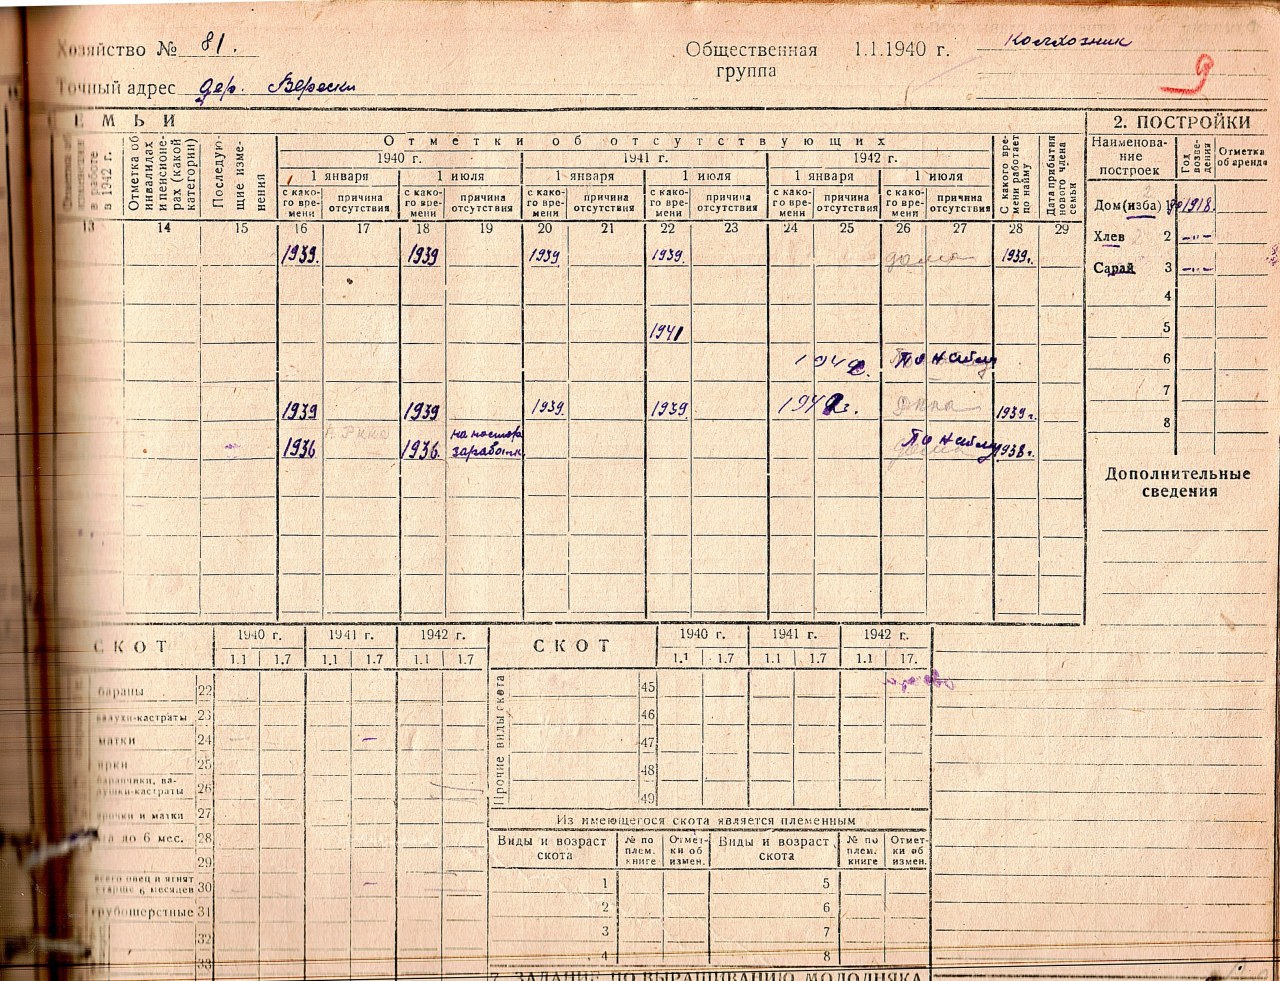 Хозяйство № 81.
Общественная группа 1.1.1940 г. колхозник
9
Точный адрес дер. Верески
СЕМЬИ
2. ПОСТРОЙКИ
в 1942 г.
Отметка об инвалидах и пенсионерах (какой категории)
Последующие изменения
Отметки об отсутствующих
1940 г. 1941 г. 1942 г.
1 января 1 июля 1 января 1 июля 1 января 1 июля
с какого времени причина отсутствия с какого времени причина отсутствия с какого времени причина отсутствия с какого времени причина отсутствия с какого времени причина отсутствия с какого времени причина отсутствия
С какого времени работает по найму
Дата прибытия нового члена семьи
Наименование построек
Год возведения
Отметка об аренде
13 14 15 16 17 18 19 20 21 22 23 24 25 26 27 28 29
1939. 1939 1939 1939. дома 1939г.
1941
1942. По набору
1939 1939 1939. 1939. 1942г. 1939г.
1936 1936. заработк По набору 1938г.
Дом (изба) 1 до 1918.
Хлев 2 -"-
Сарай 3 -"-
4
5
6
7
8
Дополнительные сведения
СКОТ
1940 г. 1941 г. 1942 г.
1.1 1.7 1.1 1.7 1.1 1.7
бараны 22
валухи-кастраты 23
матки 24 -
ярки 25
баранчики, валушки-кастраты 26
ярочки и матки 27
до 6 мес. 28
29
всего овец и ягнят старше 6 месяцев 30 -
грубошерстные 31
32
33
СКОТ
1940 г. 1941 г. 1942 г.
1.1 1.7 1.1 1.7 1.1 17.
Прочие виды скота
45
46
47
48
49
Из имеющегося скота является племенным
Виды и возраст скота № по плем. книге Отметки об измен. Виды и возраст скота № по плем. книге Отметки об измен.
1 5
2 6
3 7
4 8
7. ЗАДАНИЕ ПО ВЫРАЩИВАНИЮ МОЛОДНЯКА